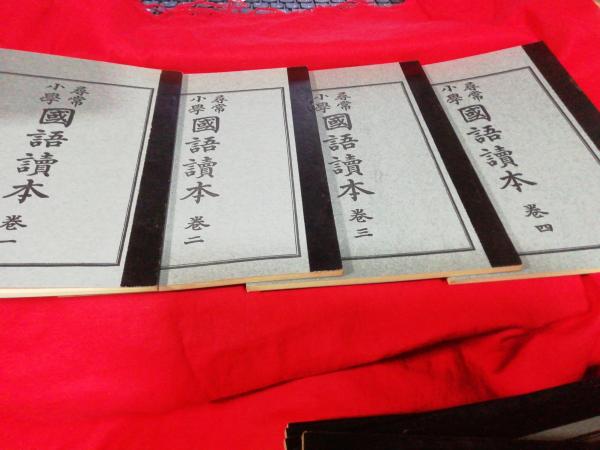 尋常小學
國語讀本
卷一
尋常小學
國語讀本
卷二
尋常小學
國語讀本
卷三
尋常小學
國語讀本
卷四